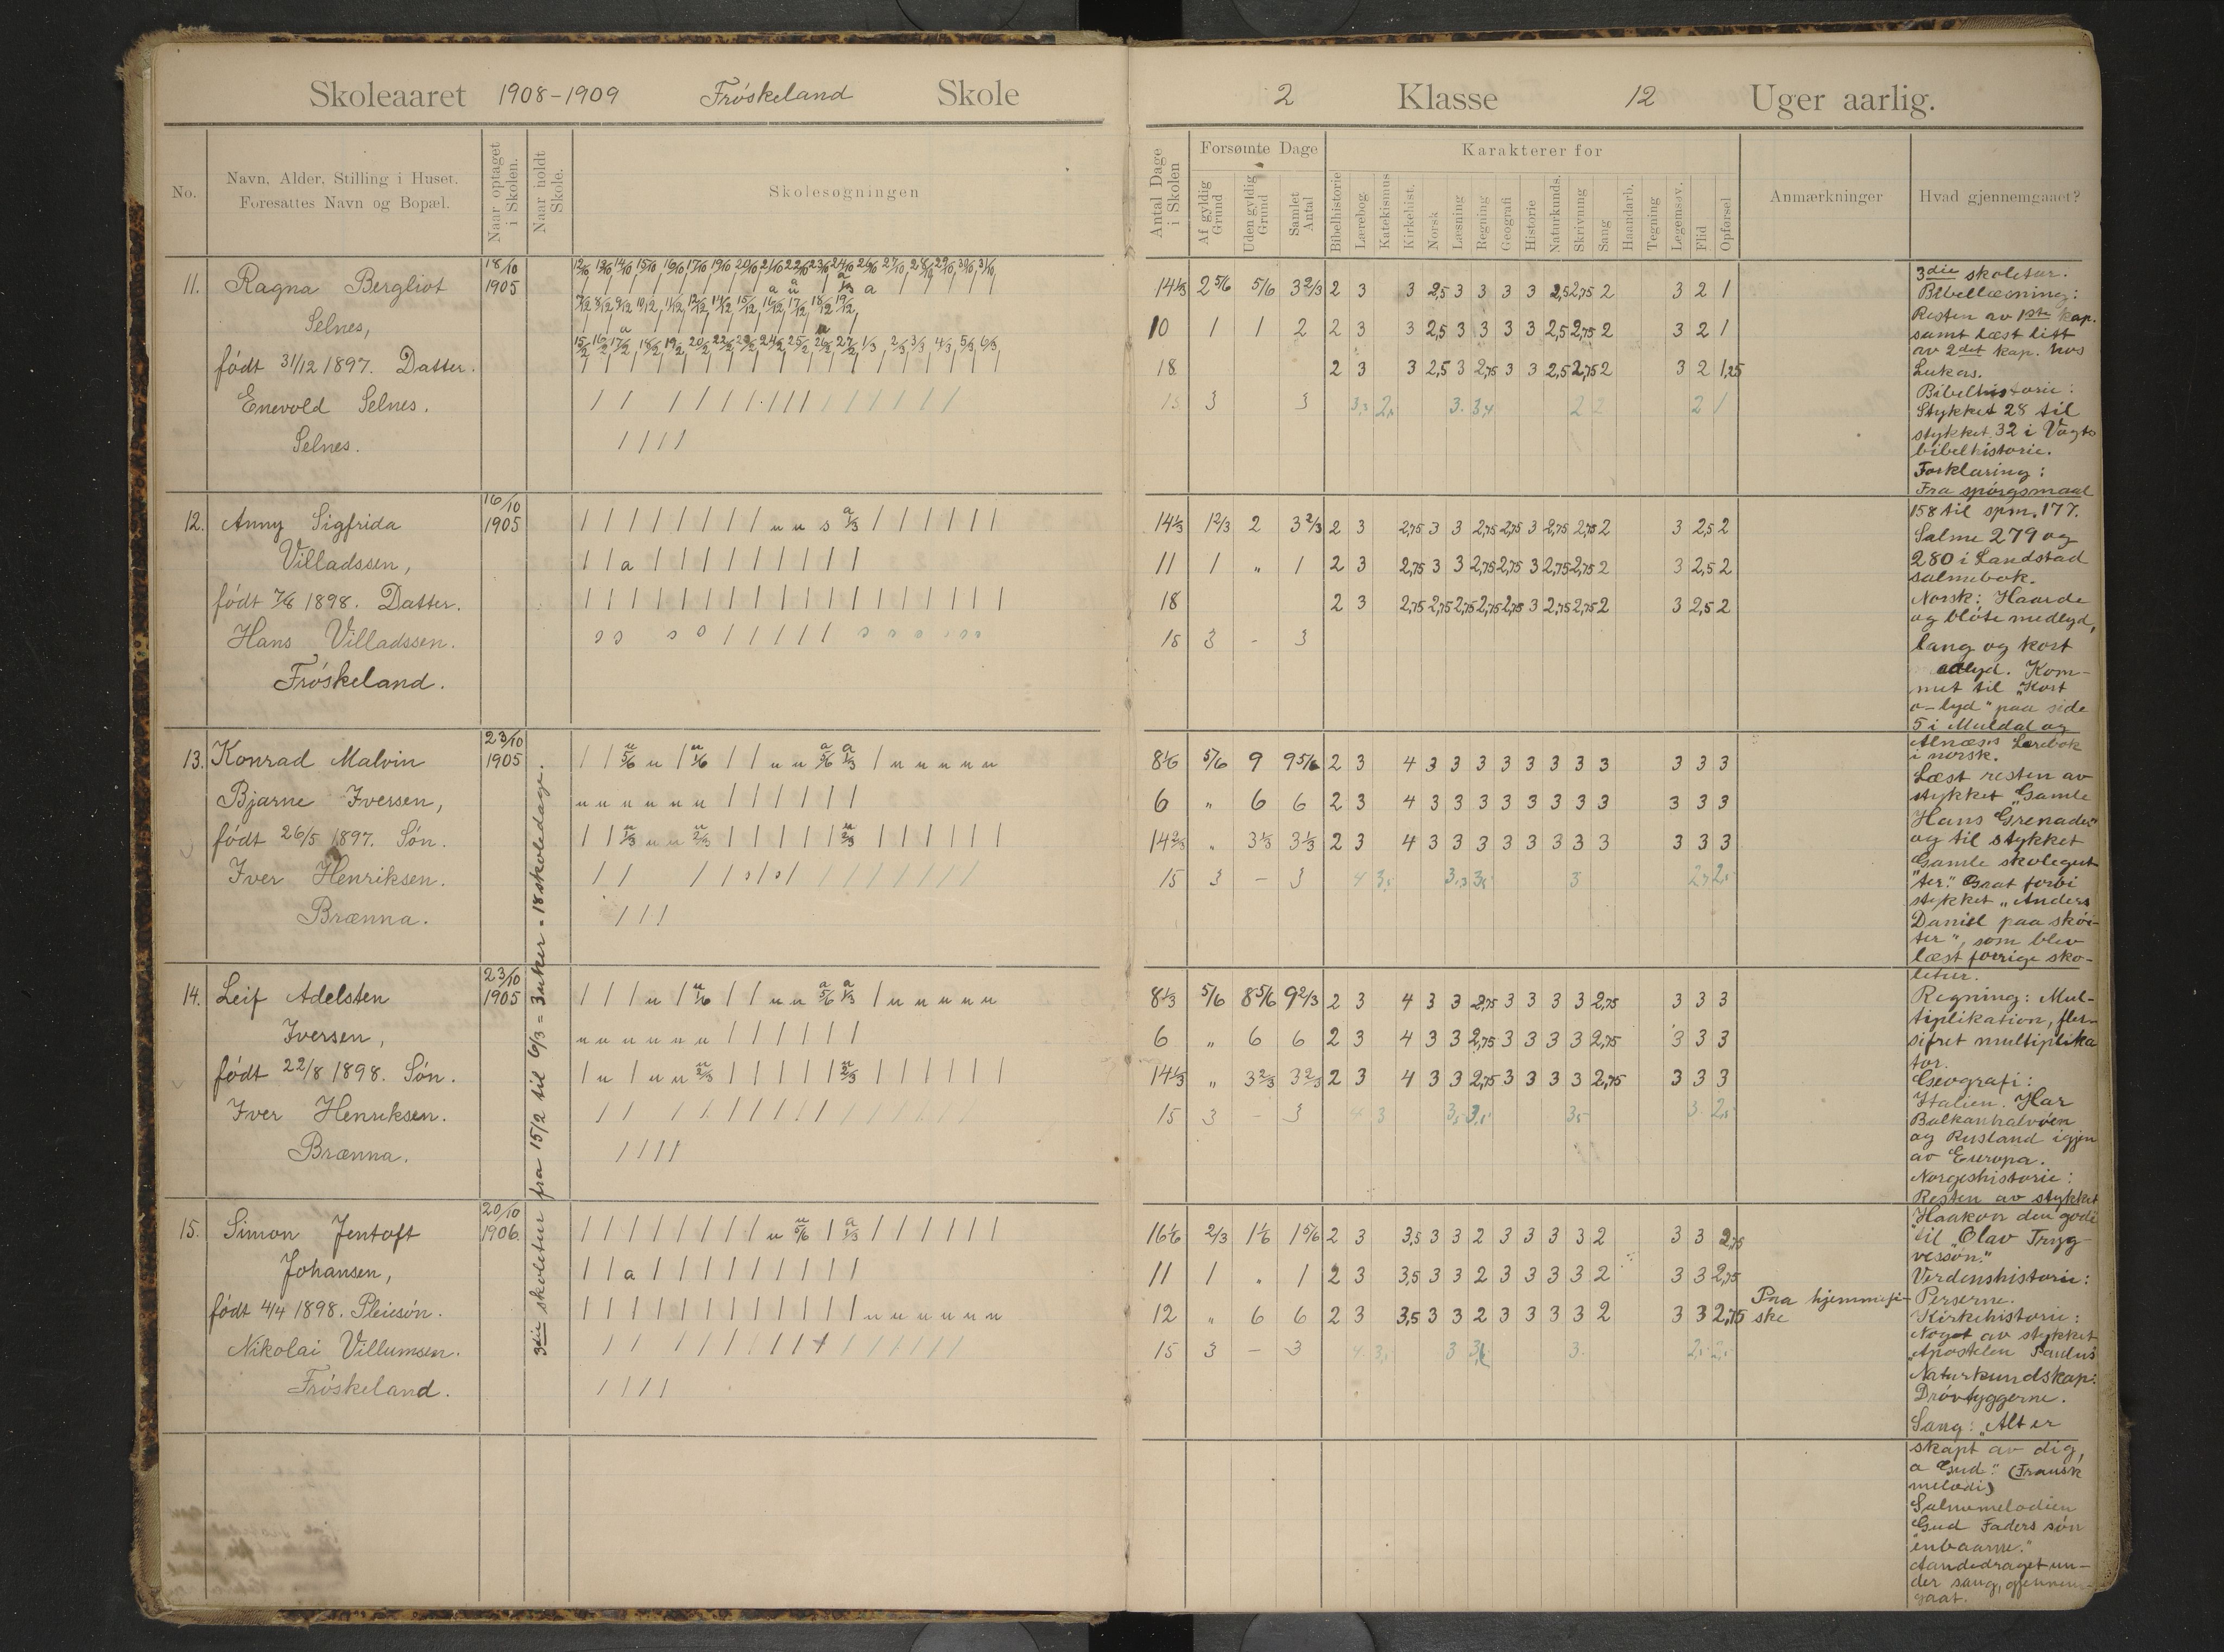 Skoleaaret 1908-1909 Frøskeland Skole
No.
Navn, Alder, Stilling i Huset.
Foresattes Navn og Bopæl.
Naar optaget
i Skolen.
Naar holdt
Skole.
Skolesøgningen
11. Ragna Bergliot 18/10 1905
Selnes,
født 31/12 1897. Datter.
Enevold Selnes.
Selnes.
12. Anny Sigfrida 16/10 1905
Villadssen,
født 7/8 1898. Datter.
Hans Villadssen.
Frøskeland.
13. Konrad Malvin 23/10 1905
Bjarne Iversen,
født 26/5 1897. Søn.
Iver Henriksen.
Brænna.
14. Leif Adelsten 23/10 1905
Iversen,
født 22/8 1898. Søn.
Iver Henriksen.
Brænna.
15. Simon Jentoft 20/10 1906
Johansen,
født 4/4 1898. Pleiesøn.
Nikolai Villumsen.
Frøskeland.
3die skoletur fra 15/2 til 6/3 = 3 uker = 18 skoledage.
12/10 13/10 14/10 15/10 16/10 17/10 19/10 20/10 21/10 22/10 23/10 24/10 26/10 27/10 28/10 29/10 30/10 31/10
7/12 8/12 9/12 10/12 11/12 12/12 14/12 15/12 16/12 17/12 18/12 19/12
15/2 16/2 17/2 18/2 19/2 20/2 22/2 23/2 24/2 25/2 26/2 27/2 1/3 2/3 3/3 4/3 5/3 6/3
2 Klasse 12 Uger aarlig.
Antal Dage
i Skolen
Forsømte Dage
Af gyldig
Grund
Uden gyldig
Grund
Samlet
Antal
Karakterer for
Bibelhistorie
Lærebog
Katekismus
Kirkehist.
Norsk
Læsning
Regning
Geografi
Historie
Naturkunds.
Skrivning
Sang
Haandarb.
Tegning
Legemsøv.
Flid
Opførsel
Anmærkninger
Hvad gjennemgaaet?
14 1/3 2 5/6 5/6 3 2/3 2 3 3 2,5 3 3 3 3 2,5 2,75 2 3 2 1
10 1 1 2 2 3 3 2,5 3 3 3 3 2,5 2,75 2 3 2 1
18 2 3 3 2,5 3 2,75 3 3 2,5 2,75 2 3 2 1,25
15 3 3
14 1/3 1 2/3 2 3 2/3 2 3 2,75 3 3 2,75 2,75 3 2,75 2,75 2 3 2,5 2
11 1 " 1 2 3 2,75 3 3 2,75 2,75 3 2,75 2,75 2 3 2,5 2
18 2 3 2,75 2,75 2,75 2,75 2,75 3 2,75 2,75 2 3 2,5 2
15 3 - 3
8 1/6 5/6 9 9 5/6 2 3 4 3 3 3 3 3 3 3 3 3 3 3
6 " 6 6 2 3 4 3 3 3 3 3 3 3 3 3 3 3
14 2/3 " 3 1/3 3 1/3 2 3 4 3 3 3 3 3 3 3 3 3 3 3
15 3 - 3
8 1/3 5/6 8 5/6 9 2/3 2 3 4 3 3 2,75 3 3 3 3 2,75 3 3 3
6 " 6 6 2 3 4 3 3 2,75 3 3 3 3 2,75 3 3 3
14 1/3 " 3 2/3 3 2/3 2 3 4 3 3 2,75 3 3 3 3 2,75 3 3 3
15 3 - 3
16 1/6 2/3 1 1/6 1 5/6 2 3 3,5 3 3 2 3 3 3 3 2 3 3 2,75
11 1 " 1 2 3 3,5 3 3 2 3 3 3 3 2 3 3 2,75
12 " 6 6 2 3 3,5 3 3 2 3 3 3 3 2 3 3 2,75
Paa hjemmefi-
ske
15 3 - 3
3die skoletur.
Bibellæsning:
Resten av 1ste kap.
samt læst litt
av 2det kap. hos
Lukas.
Bibelhistorie:
Stykket 28 til
stykket 32 i Vogts
bibelhistorie.
Forklaring:
Fra spørgsmaal
158 til spm. 177.
Salme 279 og
280 i Landstad
salmebok.
Norsk: Haarde
og bløte medlyd,
lang og kort
Kom-
met til "Kort
o-lyd" paa side
5 i Muldal og
Alnæs's Lærebok
i norsk.
Læst resten av
stykket "Gamle
Hans Grenader"
og til stykket
"Gamle skolegut-
ter." Gaat forbi
stykket "Anders
Daniel paa skøi-
ter", som blev
læst forrige sko-
letur.
Regning: Mul-
tiplikation, fler-
sifret multiplika
tor.
Geografi:
Italien. Har
Balkanhalvøen
og Rusland igjen
av Europa.
Norgeshistorie:
Resten av stykket
"Haakon den gode"
til "Olav Tryg-
vessøn."
Verdenshistorie:
Perserne.
Kirkehistorie:
Noget av stykket
"Apostelen Paulus"
Naturkundskap:
Drøvtyggerne.
Sang: "Alt er
skapt av dig,
o Gud." (Fransk
melodi)
Salmemelodien
"Gud Faders søn
enbaarne."
Aandedraget un-
der sang, gjennem-
gaat.